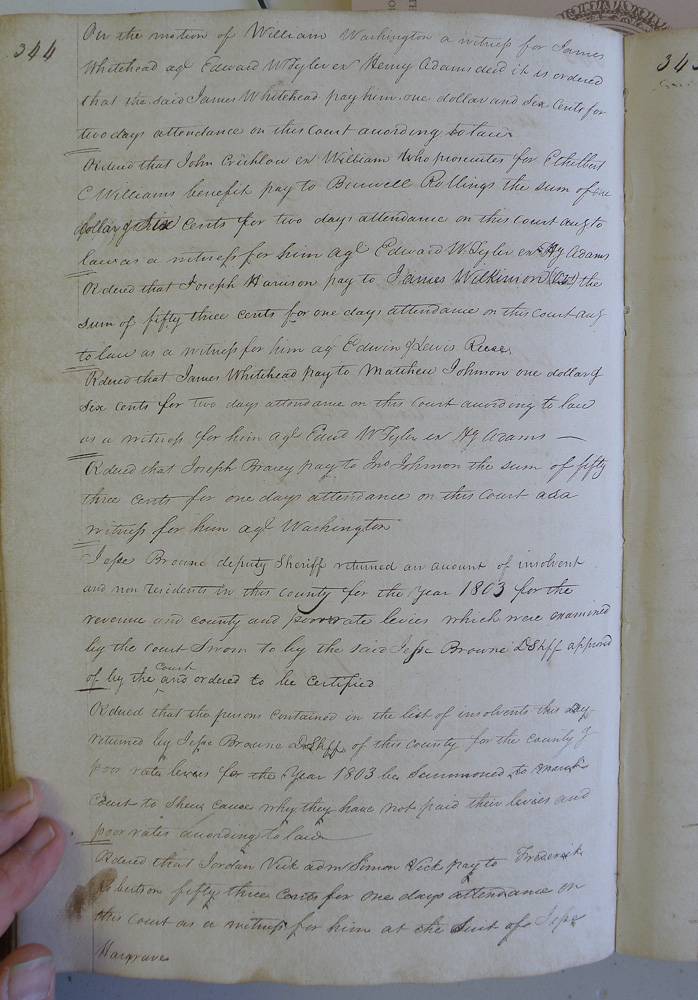 344
On the motion of William Washington a witness for James
Whitehead agt Edward W Tyler ex Henry Adams decd it is ordered
that the said James Whitehead pay him one dollar and six cents for
two days attendance on this Court according to law
Ordered that John Crichlow ex William who prosecutes for Ethelbert
C Williams benefit pay to Burwell Rollings the sum of one
dollar & Six cents for two days attendance on this court accg to
law as a witness for him agt Edward W Tyler exr Hy Adams
Ordered that Joseph Harrison pay to James Wilkinson the
sum of fifty three cents for one days attendance on this court accg
to law as a witness for him agt Edwin & Lewis Reese
Ordered that James Whitehead pay to Matthew Johnson one dollar &
Six cents for two days attendance on this Court according to law
as a witness for him agt Edwd W Tyler ex Hy Adams —
Ordered that Joseph Bracy pay to Jno Johnson the sum of fifty
three cents for one days attendance on this Court as a
witness for him agt Washington
Jesse Browne deputy Sheriff returned an amount of insolvent
and non residents in this county for the year 1803 for the
revenue and county and poor rate levies which were examined
by the court Sworn to by the said Jesse Browne D Shff approvd
of by the Court and ordered to be certified
Ordered that the persons contained in the list of insolvents this day
returned by Jesse Browne D Shff of this county for the county &
poor rate levies for the Year 1803 be Summoned to
court to Shew cause why they have not paid their levies and
poor rates according to law
Ordered that Jordan Vick adm Simon Vick pay to Frederick
Robertson fifty three Cents for one days attendance on
this Court as a witness for him at the Suit of Jesse
Hargrave